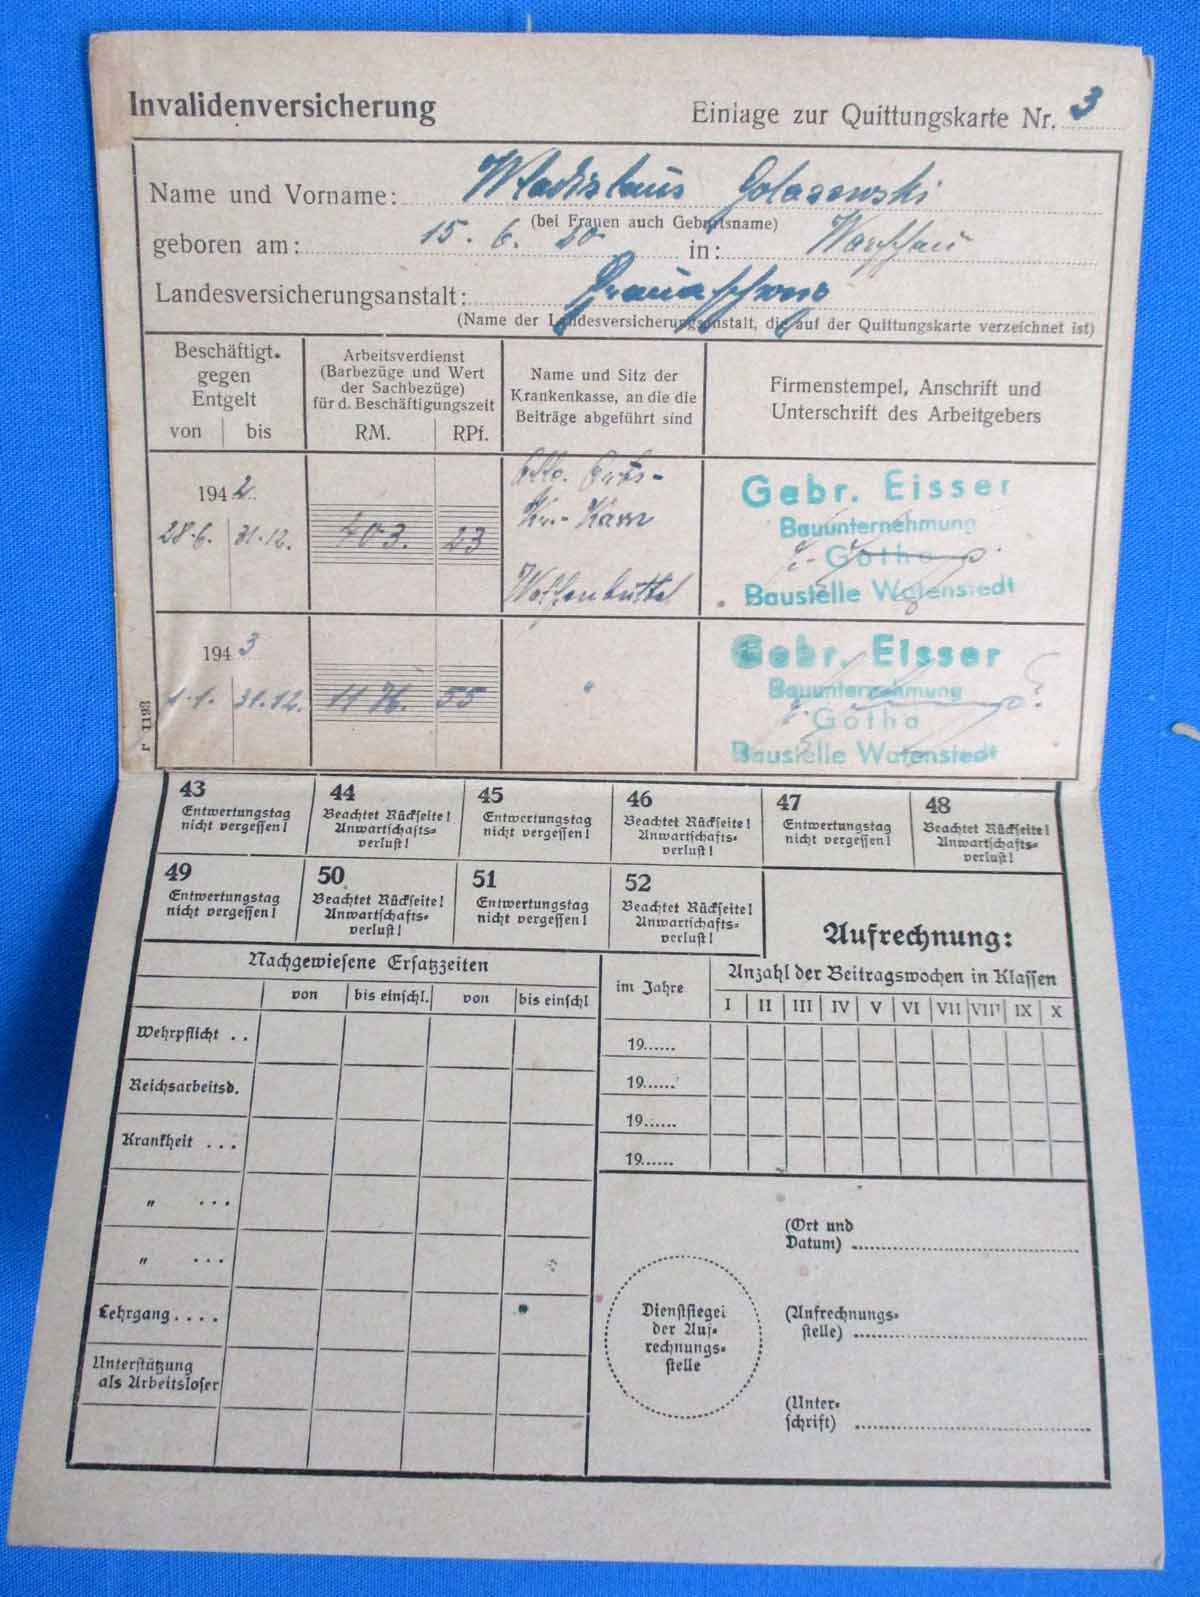 Invalidenversicherung
Einlage zur Quittungskarte Nr. 3
Name und Vorname: Wladislaus Golasewski
(bei Frauen auch Geburtsname)
geboren am: 15. 6. 20 in: Warschau
Landesversicherungsanstalt: Braunschweig
(Name der Landesversicherungsanstalt, die auf der Quittungskarte verzeichnet ist)
Beschäftigt.
gegen
Entgelt
von bis
Arbeitsverdienst
(Barbezüge und Wert
der Sachbezüge)
für d. Beschäftigungszeit
RM. RPf.
Name und Sitz der
Krankenkasse, an die die
Beiträge abgeführt sind
Firmenstempel, Anschrift und
Unterschrift des Arbeitgebers
1942
28.6. 31.12. 403. 23
Allg. Orts-
Wolfenbüttel
Gebr. Eisser
Bauunternehmung
Gotha
Baustelle Watenstedt
1943
1.1. 31.12. 1176. 55 "
Gebr. Eisser
Bauunternehmung
Gotha
Baustelle Watenstedt
r 1193
43
Entwertungstag
nicht vergessen!
44
Beachtet Rückseite!
Anwartschafts-
verlust!
45
Entwertungstag
nicht vergessen!
46
Beachtet Rückseite!
Anwartschafts-
verlust!
47
Entwertungstag
nicht vergessen!
48
Beachtet Rückseite!
Anwartschafts-
verlust!
49
Entwertungstag
nicht vergessen!
50
Beachtet Rückseite!
Anwartschafts-
verlust!
51
Entwertungstag
nicht vergessen!
52
Beachtet Rückseite!
Anwartschafts-
verlust!
Aufrechnung:
Nachgewiesene Ersatzzeiten
von bis einschl. von bis einschl
Wehrpflicht . .
Reichsarbeitsd.
Krankheit . . .
" . . .
" . . .
Lehrgang . . . .
Unterstützung
als Arbeitsloser
im Jahre
Anzahl der Beitragswochen in Klassen
I II III IV V VI VII VIII IX X
19......
19......
19......
19......
Dienstsiegel
der Auf-
rechnungs-
stelle
(Ort und
Datum)
(Aufrechnungs-
stelle)
(Unter-
schrift)